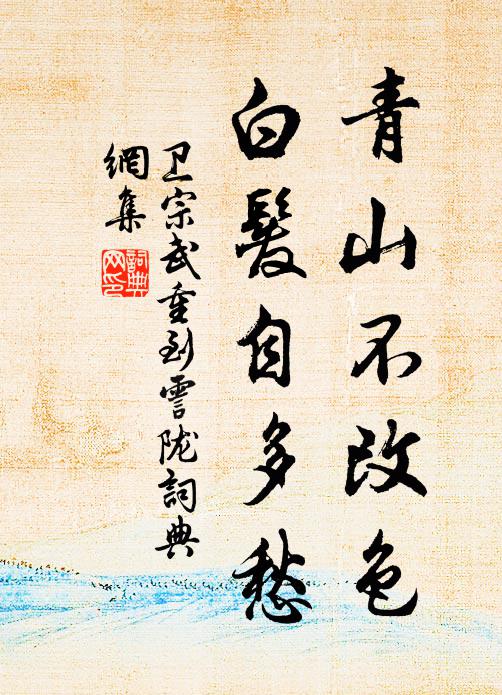 青山不改色
白髮自多愁
卫宗武重到霅陇詞典
網集
詞典
网印